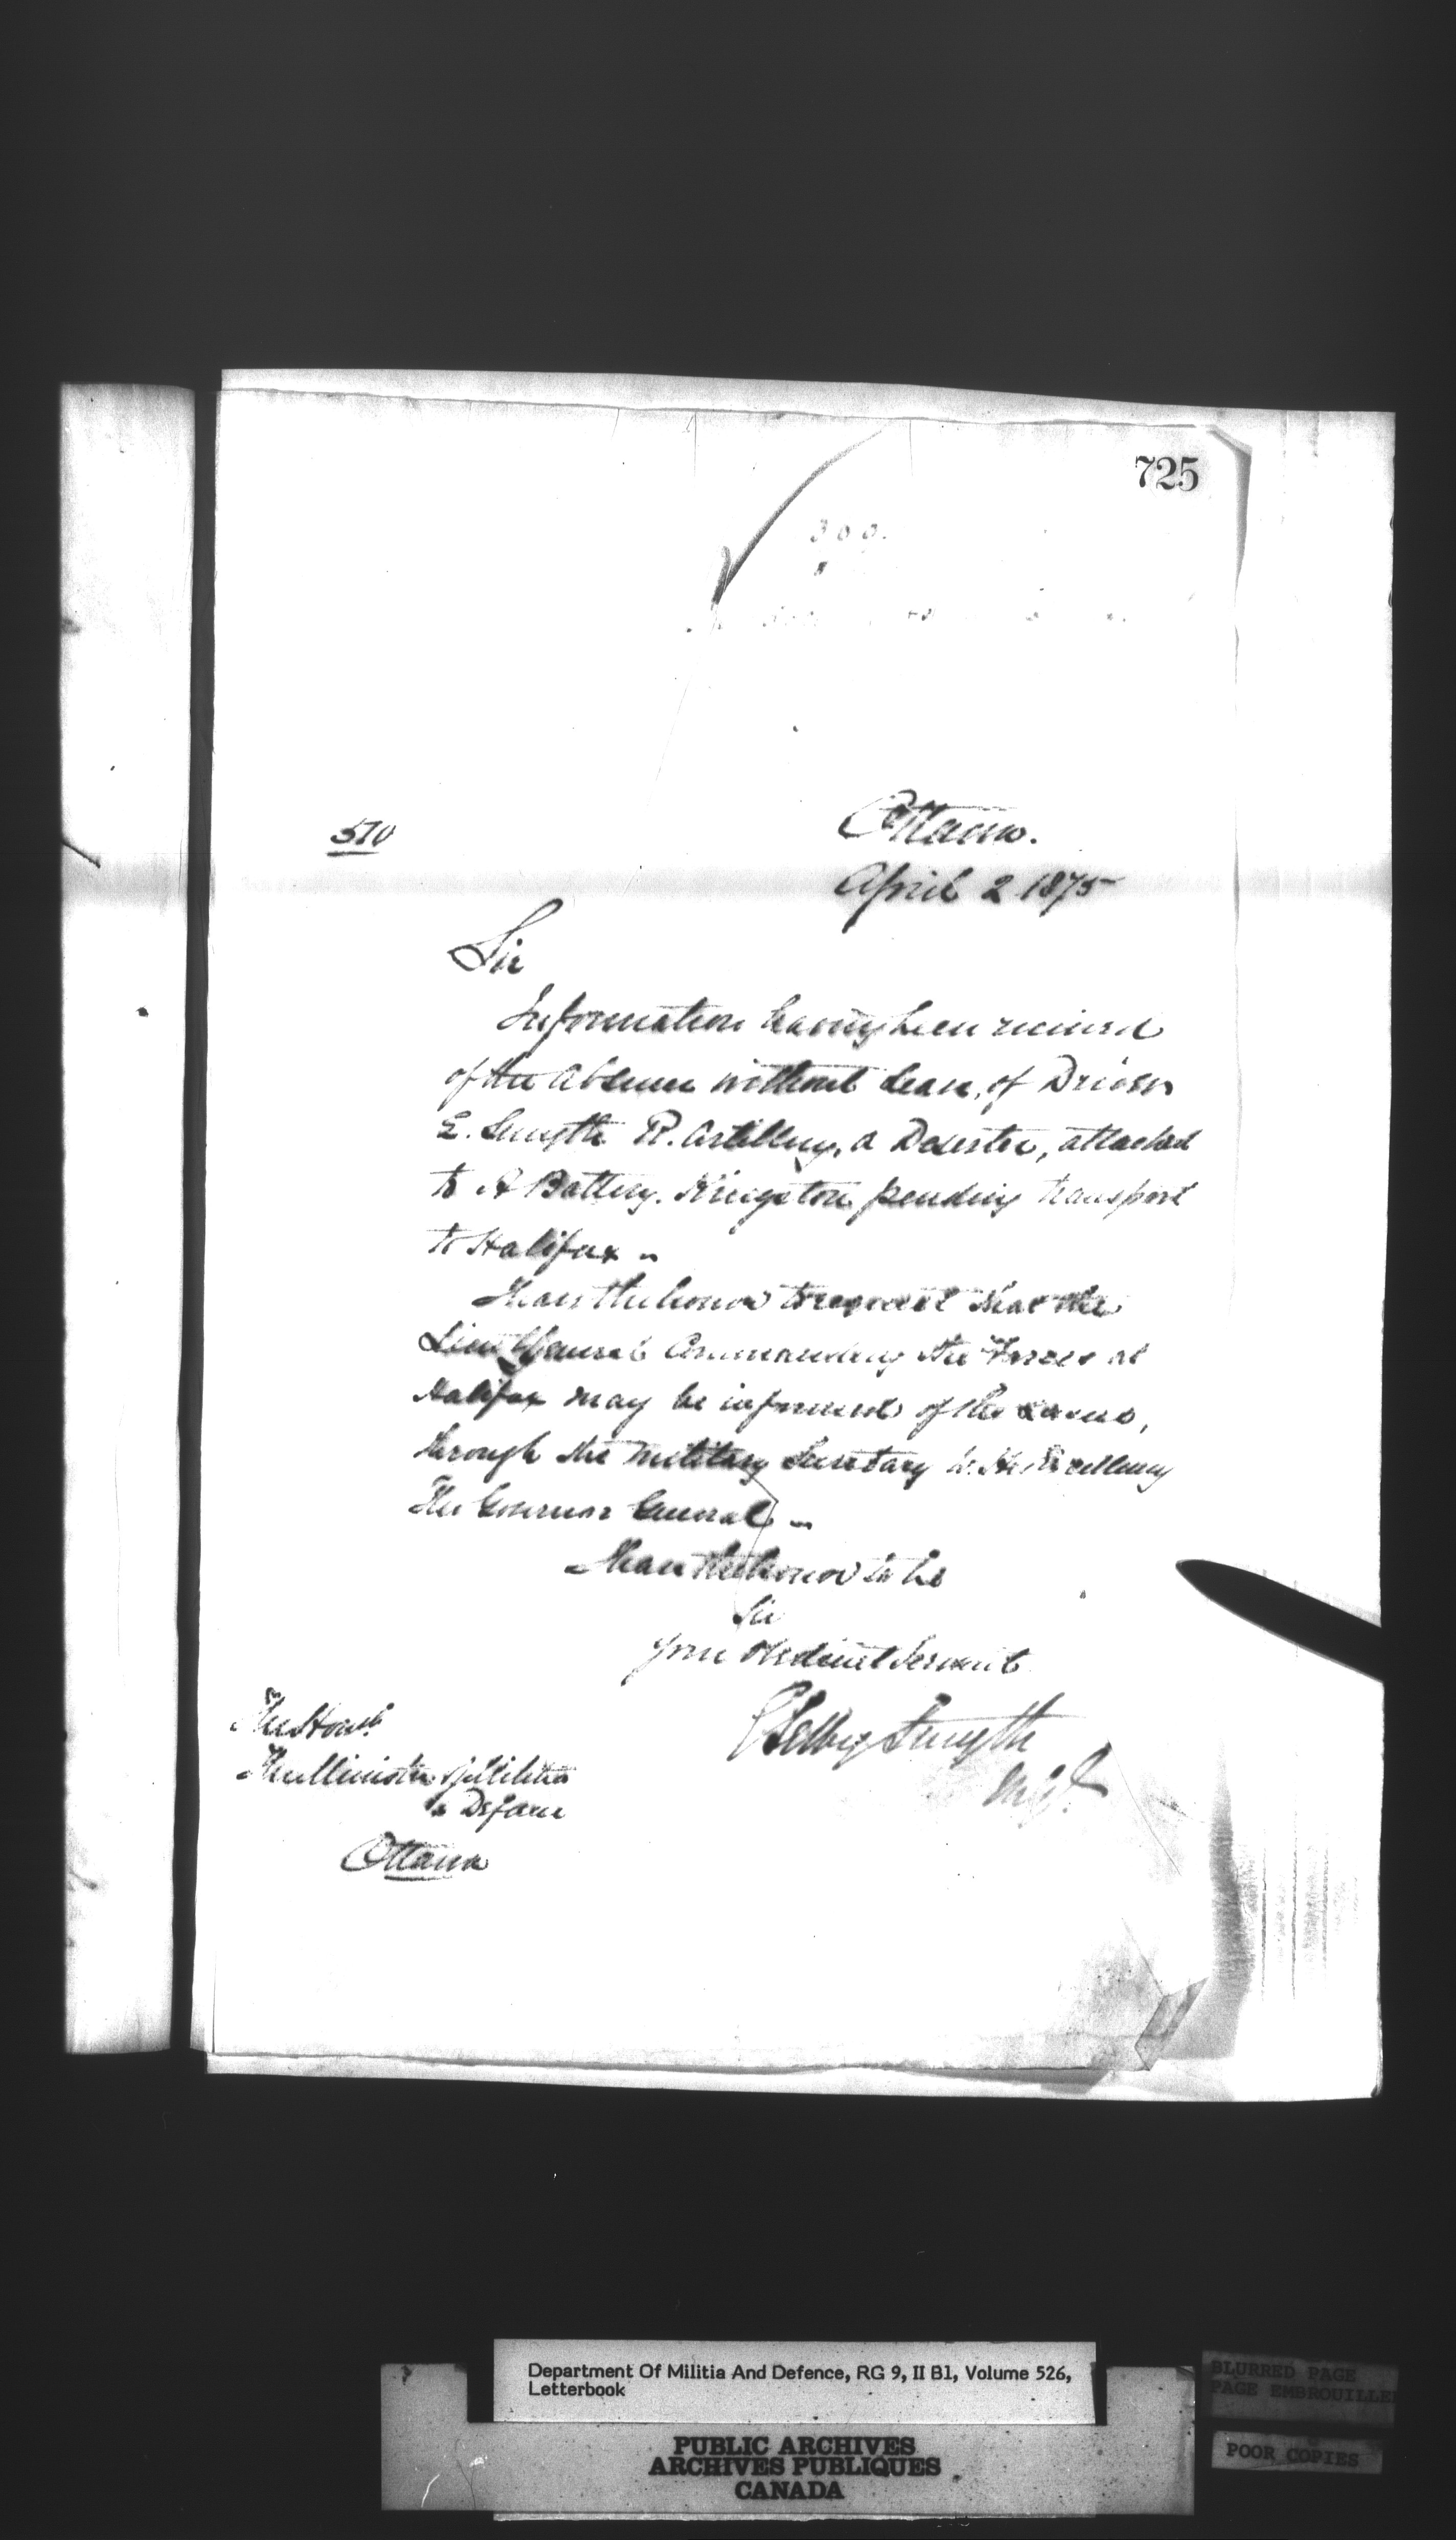 725
309.
510
Ottawa.
April 2 1875
Sir
Information having been received
of the absence without leave, of Driver
E. Smyth R. Artillery, a Deserter, attached
to A Battery. Kingston pending transport
to Halifax –
I have the honor to request that the
Lieut General Commanding the Forces at
Halifax may be informed of the same,
through the Military Secretary to His Excellency
The Governor General –
I have the honor to be
Sir
Your obedient Servant
Selby Smyth
M.G.
The Honble
The Minister of Militia
& Defence
Ottawa
Department Of Militia And Defence, RG 9, II B1, Volume 526,
Letterbook
PUBLIC ARCHIVES
ARCHIVES PUBLIQUES
CANADA
BLURRED PAGE
PAGE EMBROUILLEE
POOR COPIES